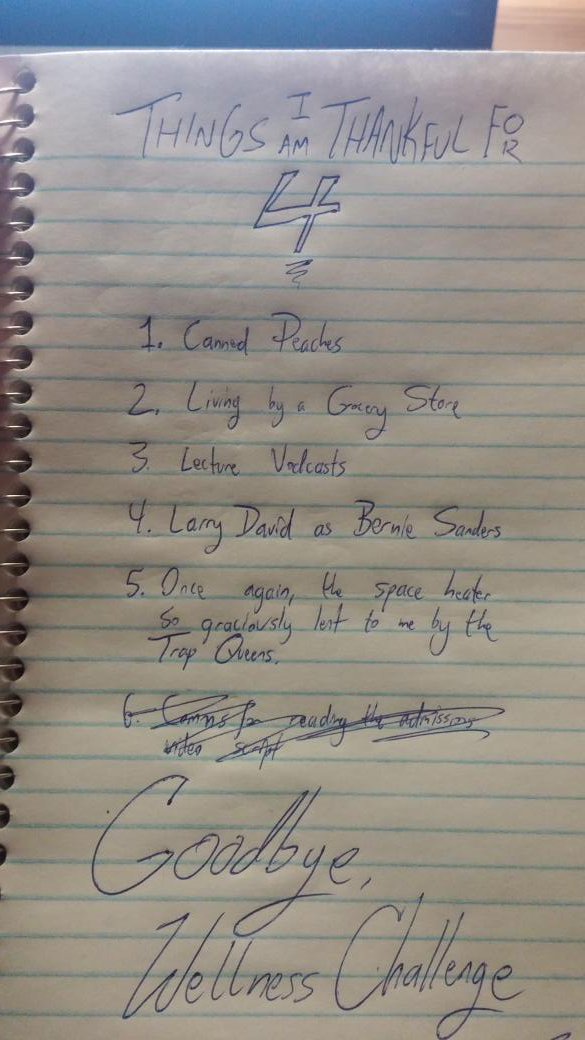 THINGS I AM THANKFUL FOR
4
1. Canned Peaches
2. Living by a Grocery Store
3. Lecture Vodcasts
4. Larry David as Bernie Sanders
5. Once again, the space heater
so graciously lent to me by the
Trap Queens.
6. Comms for reading the admissions
video script
Goodbye,
Wellness Challenge